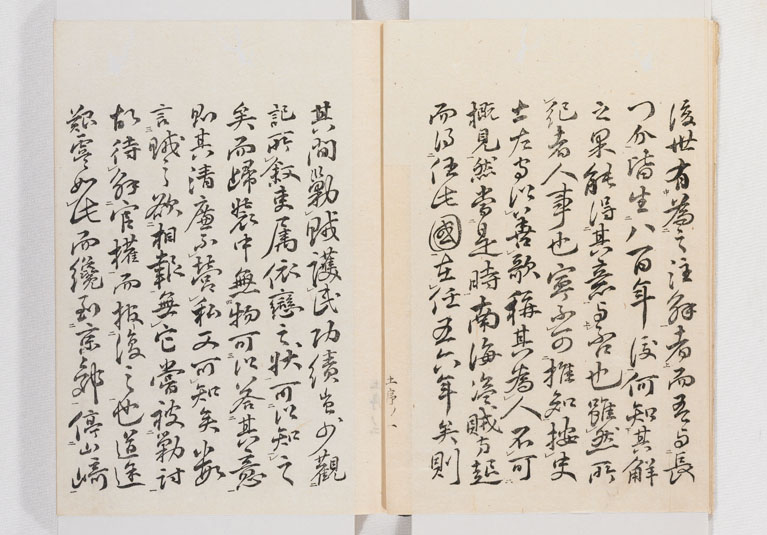 後世有為之注解者而吾与長
皆生八百年後何知其解
之果能得其意与否也雖然所
記者人事也寧不可推知按史
土左守以善歌稱其為人不可
概見然當是時南海盗賊方起
而得任此國在任五六年矣則
土序ノ一
其間勦賊護民功績豈少觀
記所叙吏属依戀之状可以知之
矣而歸装中無物可以答其意
則其清廉不營私又可知矣毎
言賊之欲相報無它嘗被勒討
故待解官權而报復之也道途
艱虞如此而纔到京郊停山崎